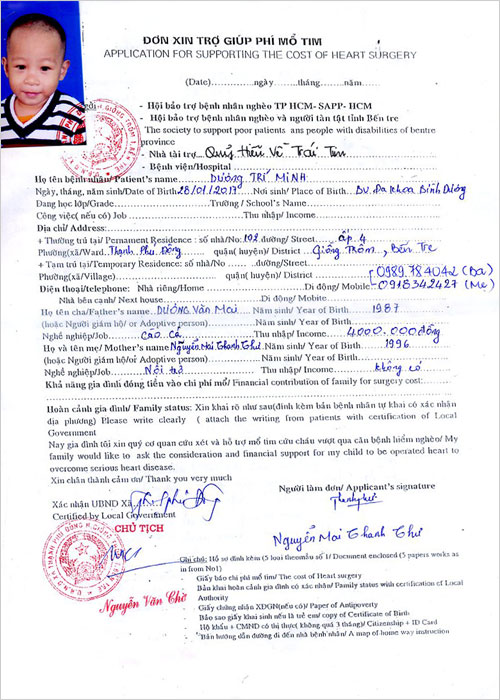 ĐƠN XIN TRỢ GIÚP PHÍ MỔ TIM
APPLICATION FOR SUPPORTING THE COST OF HEART SURGERY
(Date)..............ngày........tháng........năm......
gởi - Hội bảo trợ bệnh nhân nghèo TP HCM- SAPP- HCM
- Hội bảo trợ bệnh nhân nghèo và người tàn tật tỉnh Bến tre
The society to support poor patients ans people with disabilities of bentre
province
- Nhà tài trợ Quỹ Hiểu Về Trái Tim
- Bệnh viên/Hospital
Họ tên bệnh nhân/ Patient's name DƯƠNG TRÍ MINH
Ngày, tháng, năm sinh/Date of Birth 28/01/2017 Nơi sinh/ Place of Birth BV. Đa khoa Bình Dương
Đang học lớp/Grade Trường / School's Name
Công việc( nếu có) Job Thu nhập/ Income
Địa chỉ/ Address:
+ Thường trú tại/ Pemanent Residence : số nhà/No: 102 đường/ Street ấp 4
Phường(xã/Ward Thạnh Phú Đông quận( huyện)/ District Giồng Trôm, Bến Tre
+ Tạm trú tại/Temporary Residence: số nhà/No đường/Street
Phường(xã/Village) quận( huyện)/ District
Điện thoại/telephone: Nhà riêng/Home Di động/ Mobile 0989.784042 (Ba)
0918342427 (Mẹ)
Nhà bên cạnh/ Next house Di động/ Mobite
Họ tên cha/Father's name DƯƠNG Văn Mai Năm sinh/ Year of Birth 1987
(hoặc Người giám hộ/ or Adoptive person) Năm sinh/ Year of Birth
Nghề nghiệp/Job Cạo cá Thu nhập/ Income 4.000.000 đồng
Họ và tên mẹ/ Mother's name Nguyễn Mai Thanh Thư Năm sinh/ Year of Birth 1996
(hoặc Người giám hộ/or Adoptive person) Năm sinh/ Year of Birth
Nghề nghiệp/Job Nội trợ Thu nhập/ Income không có
Khả năng gia đình đóng tiền vào chi phí mổ/ Financial contribution of family for surgery cost:
Hoàn cảnh gia đình/ Family status: Xin khai rõ như sau(đính kèm bản bệnh nhân tự khai có xác nhận
địa phương) Please write clearly ( attach the writing from patients with certification of Local
Government
Nay gia đình tôi xin quý cơ quan cứu xét và hỗ trợ mổ tim cứu cháu vượt qua căn bệnh hiểm nghèo/ My
family would like to ask the consideration and financial support for my child to be operated heart to
overcome serious heart disease.
Xin chân thành cảm ơn/ Thank you very much
Người làm đơn/ Applicant's signature
Xác nhận UBND Xã Thạnh Phú Đông
Certified by Local Government
CHỦ TỊCH
Nguyễn Mai Thanh Thư
Nguyễn Văn Chờ
Ghi chú: Hồ sơ đính kèm (5 loại theo mẫu số 1/ Document enclosed (5 papers works as
in from No1)
Giấy báo chi phí mổ tim/ The cost of Heart surgery
Bản khai hoàn cảnh gia đình có xác nhận/ Family status with certification of Local
Authority
Giấy chứng nhận XĐGN(nếu có)/ Paper of Antipoverty
Bảo sao giấy khai sinh nếu là trẻ em/ copy of Certificate of Birth
Hộ khẩu + CMND có thị thực( không quá 3 tháng)/ Citizenship + ID Card
Bản hướng dẫn đường đi đến nhà bệnh nhân/ A map of home way instruction